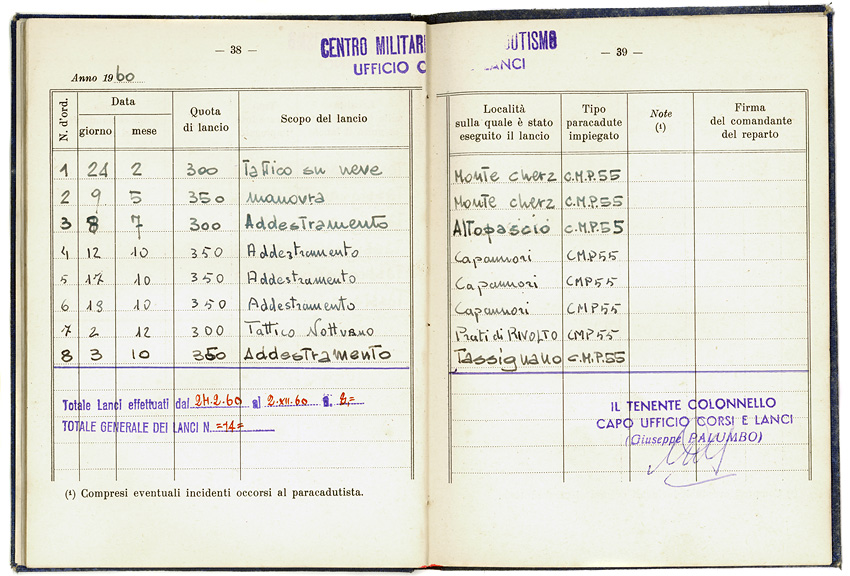 — 38 —
CENTRO MILITAR
UFFICIO C
Anno 1960
N. d'ord.
Data
giorno
mese
Quota
di lancio
Scopo del lancio
1 24 2 300 Tattico su neve
2 9 5 350 manovra
3 8 7 300 Addestramento
4 12 10 350 Addestramento
5 17 10 350 Addestramento
6 19 10 350 Addestramento
7 2 12 300 Tattico Notturno
8 3 10 350 Addestramento
Totale Lanci effettuati dal 24.2.60 al 2.XII.60
TOTALE GENERALE DEI LANCI N. =14=
(¹) Compresi eventuali incidenti occorsi al paracadutista.
UTISMO
LANCI
— 39 —
Località
sulla quale è stato
eseguito il lancio
Tipo
paracadute
impiegato
Note
(¹)
Firma
del comandante
del reparto
Monte cherz C.M.P.55
Monte cherz C.M.P.55
Altopascio C.M.P.55
Capannori CMP55
Capannori CMP55
Capannori CMP55
Prati di RIVOLTO CMP55
Tassignano C.M.P.55
IL TENENTE COLONNELLO
CAPO UFFICIO CORSI E LANCI
(Giuseppe PALUMBO)